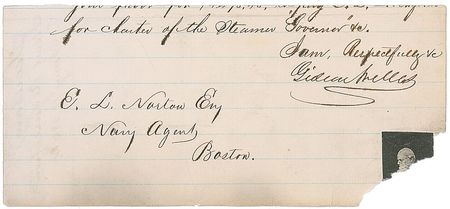 for
for charter of the Steamer Governor &c.
I am, Respectfully &c
Gideon Welles
E. L. Norton Esq
Navy Agent
Boston.